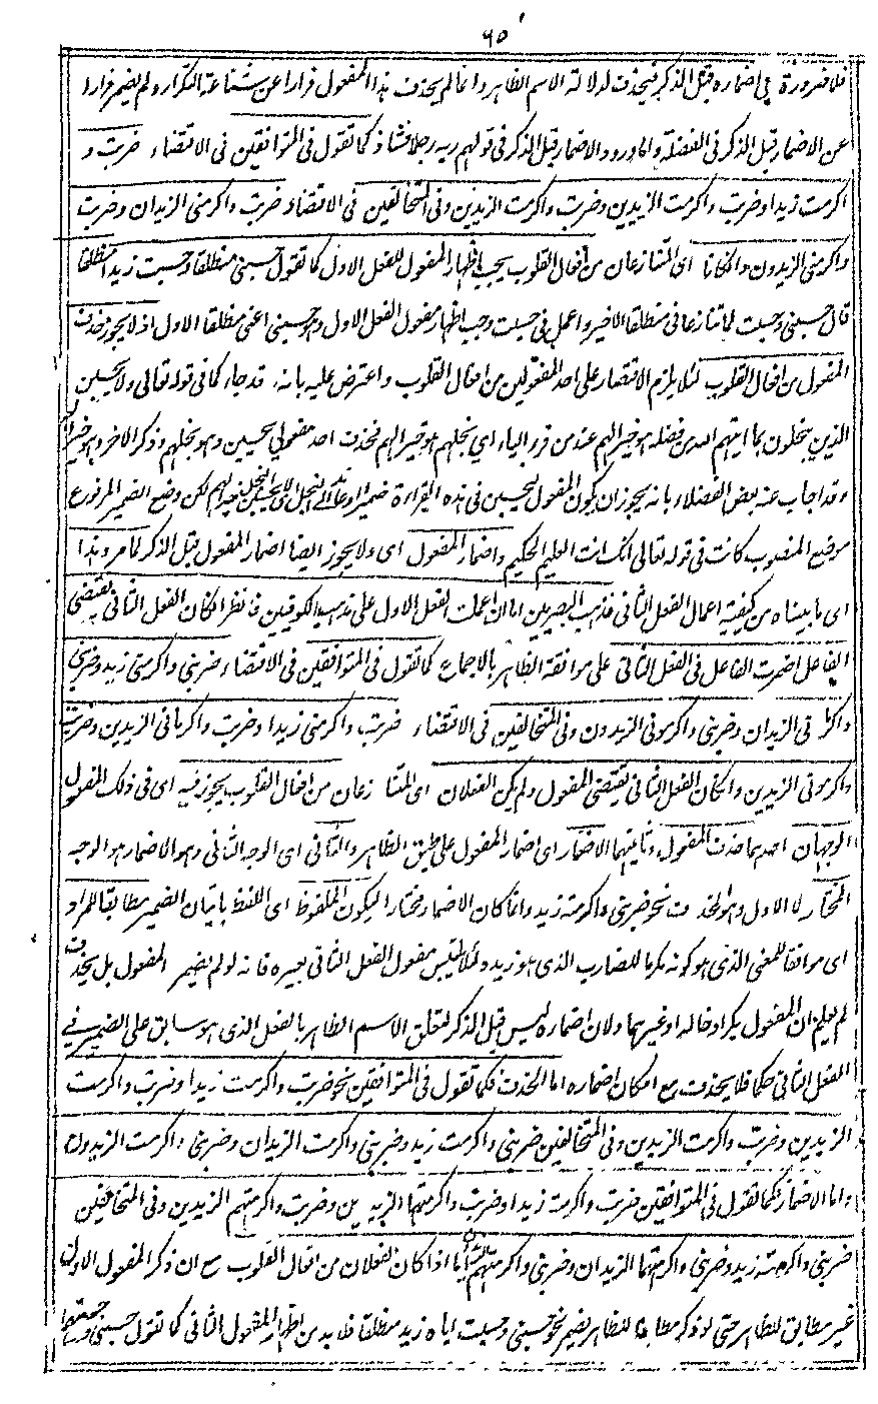 ٦٥
فلا ضرورة في اضماره قبل الذكر فيحذف لدلالة الاسم الظاهر وانما لم يحذف هذا المفعول فرارا عن شناعة التكرار ولم يضمر فرارا
عن الاضمار قبل الذكر في الفضلة واما ورود الاضمار قبل الذكر في قولهم ربه رجلا فشاذ كما تقول في المتوافقين في الاقتضاء ضربت و
اكرمت زيدا وضربت واكرمت الزيدين وضربت واكرمت الزيدين وفي المتخالفين في الاقتضاء ضربت واكرمني الزيدان وضربت
واكرمني الزيدون وان كانا اى المتنازعان من افعال القلوب يجب اظهار المفعول للفعل الاول كما تقول حسبني منطلقا وحسبت زيدا منطلقا
قال حسبني وحسبت لما تنازعا في منطلقا الاخير واعمل في حسبت وجب اظهار مفعول الفعل الاول وهو حسبني اعني منطلقا الاول اذ لا يجوز حذف
المفعول من افعال القلوب لئلا يلزم الاقتصار على احد المفعولين من افعال القلوب واعترض عليه بانه قد جاء كما في قوله تعالى ولا يحسبن
الذين يبخلون بما آتيهم الله من فضله هو خيرا لهم عند من قرء بالياء اي بخلهم هو خيرا لهم فحذف احد مفعولي يحسبن وهو بخلهم وذكر الاخر وهو خيرا
وقد اجاب عنه بعض الفضلاء بانه يجوز ان يكون المفعول ليحسبن في هذه القراءة ضميرا وعائدا الى البخل اى لا يحسبن البخل خيرا لهم لكن وضع الضمير المرفوع
موضع المنصوب كانت في قوله تعالى انك انت العليم الحكيم واضمار المفعول اى ولا يجوز ايضا اضمار المفعول قبل الذكر كما مر وهذا
اى ما بيناه من كيفية اعمال الفعل الثاني مذهب البصريين اما ان اعملت الفعل الاول على مذهب الكوفيين فانظر ان كان الفعل الثاني يقتضي
الفاعل اضمرت الفاعل في الفعل الثاني على موافقة الظاهر بالاجماع كما تقول في المتوافقين في الاقتضاء ضربني واكرمني زيد وضربني
واكرماني الزيدان وضربني واكرموني الزيدون وفي المتخالفين في الاقتضاء ضربت واكرمني زيدا وضربت واكرماني الزيدين وضربت
واكرموني الزيدين وان كان الفعل الثاني يقتضي المفعول ولم يكن الفعلان اى المتنازعان من افعال القلوب يجوز فيه اى في ذلك المفعول
الوجهان احدهما حذف المفعول وثانيهما الاضمار اى اضمار المفعول على طبق الظاهر والثاني اى الوجه الثاني وهو الاضمار هو الوجه
المختار لا الاول وهو الحذف نحو ضربني واكرمته زيد وانما كان الاضمار مختارا ليكون الملفوظ اى اللفظ باتيان الضمير مطابقا للمراد
اى موافقا للمعنى الذي هو كونه مكرما للضارب الذى هو زيد ولئلا يلتبس مفعول الفعل الثاني بغيره فانه لو لم يضمر المفعول بل يحذف
لم يعلم ان المفعول بكرا وخالدا وغيرهما ولان اضماره ليس قبل الذكر لتعلق الاسم الظاهر بالفعل الذى هو سابق على الضمير في
الفعل الثاني حكما فلا يحذف مع امكان اضماره اما الحذف فكما تقول في المتوافقين نحو ضربت واكرمت زيدا وضربت واكرمت
الزيدين وضربت واكرمت الزيدين وفي المتخالفين ضربني واكرمت زيد وضربني واكرمت الزيدان وضربني واكرمت الزيدون
واما الاضمار فكما تقول في المتوافقين ضربت واكرمته زيدا وضربت واكرمتهما الزيدين وضربت واكرمتهم الزيدين وفي المتخالفين
ضربني واكرمته زيد وضربني واكرمتهما الزيدان وضربني واكرمتهم الزيدون اما اذا كان الفعلان من افعال القلوب مع ان ذكر المفعول الاول
غير مطابق للظاهر حتى لو ذكر مطابقا للظاهر يضمر نحو حسبني وحسبت اياه زيد منطلقا فلا بد من اظهار المفعول الثاني كما تقول حسبني وحسبتهما